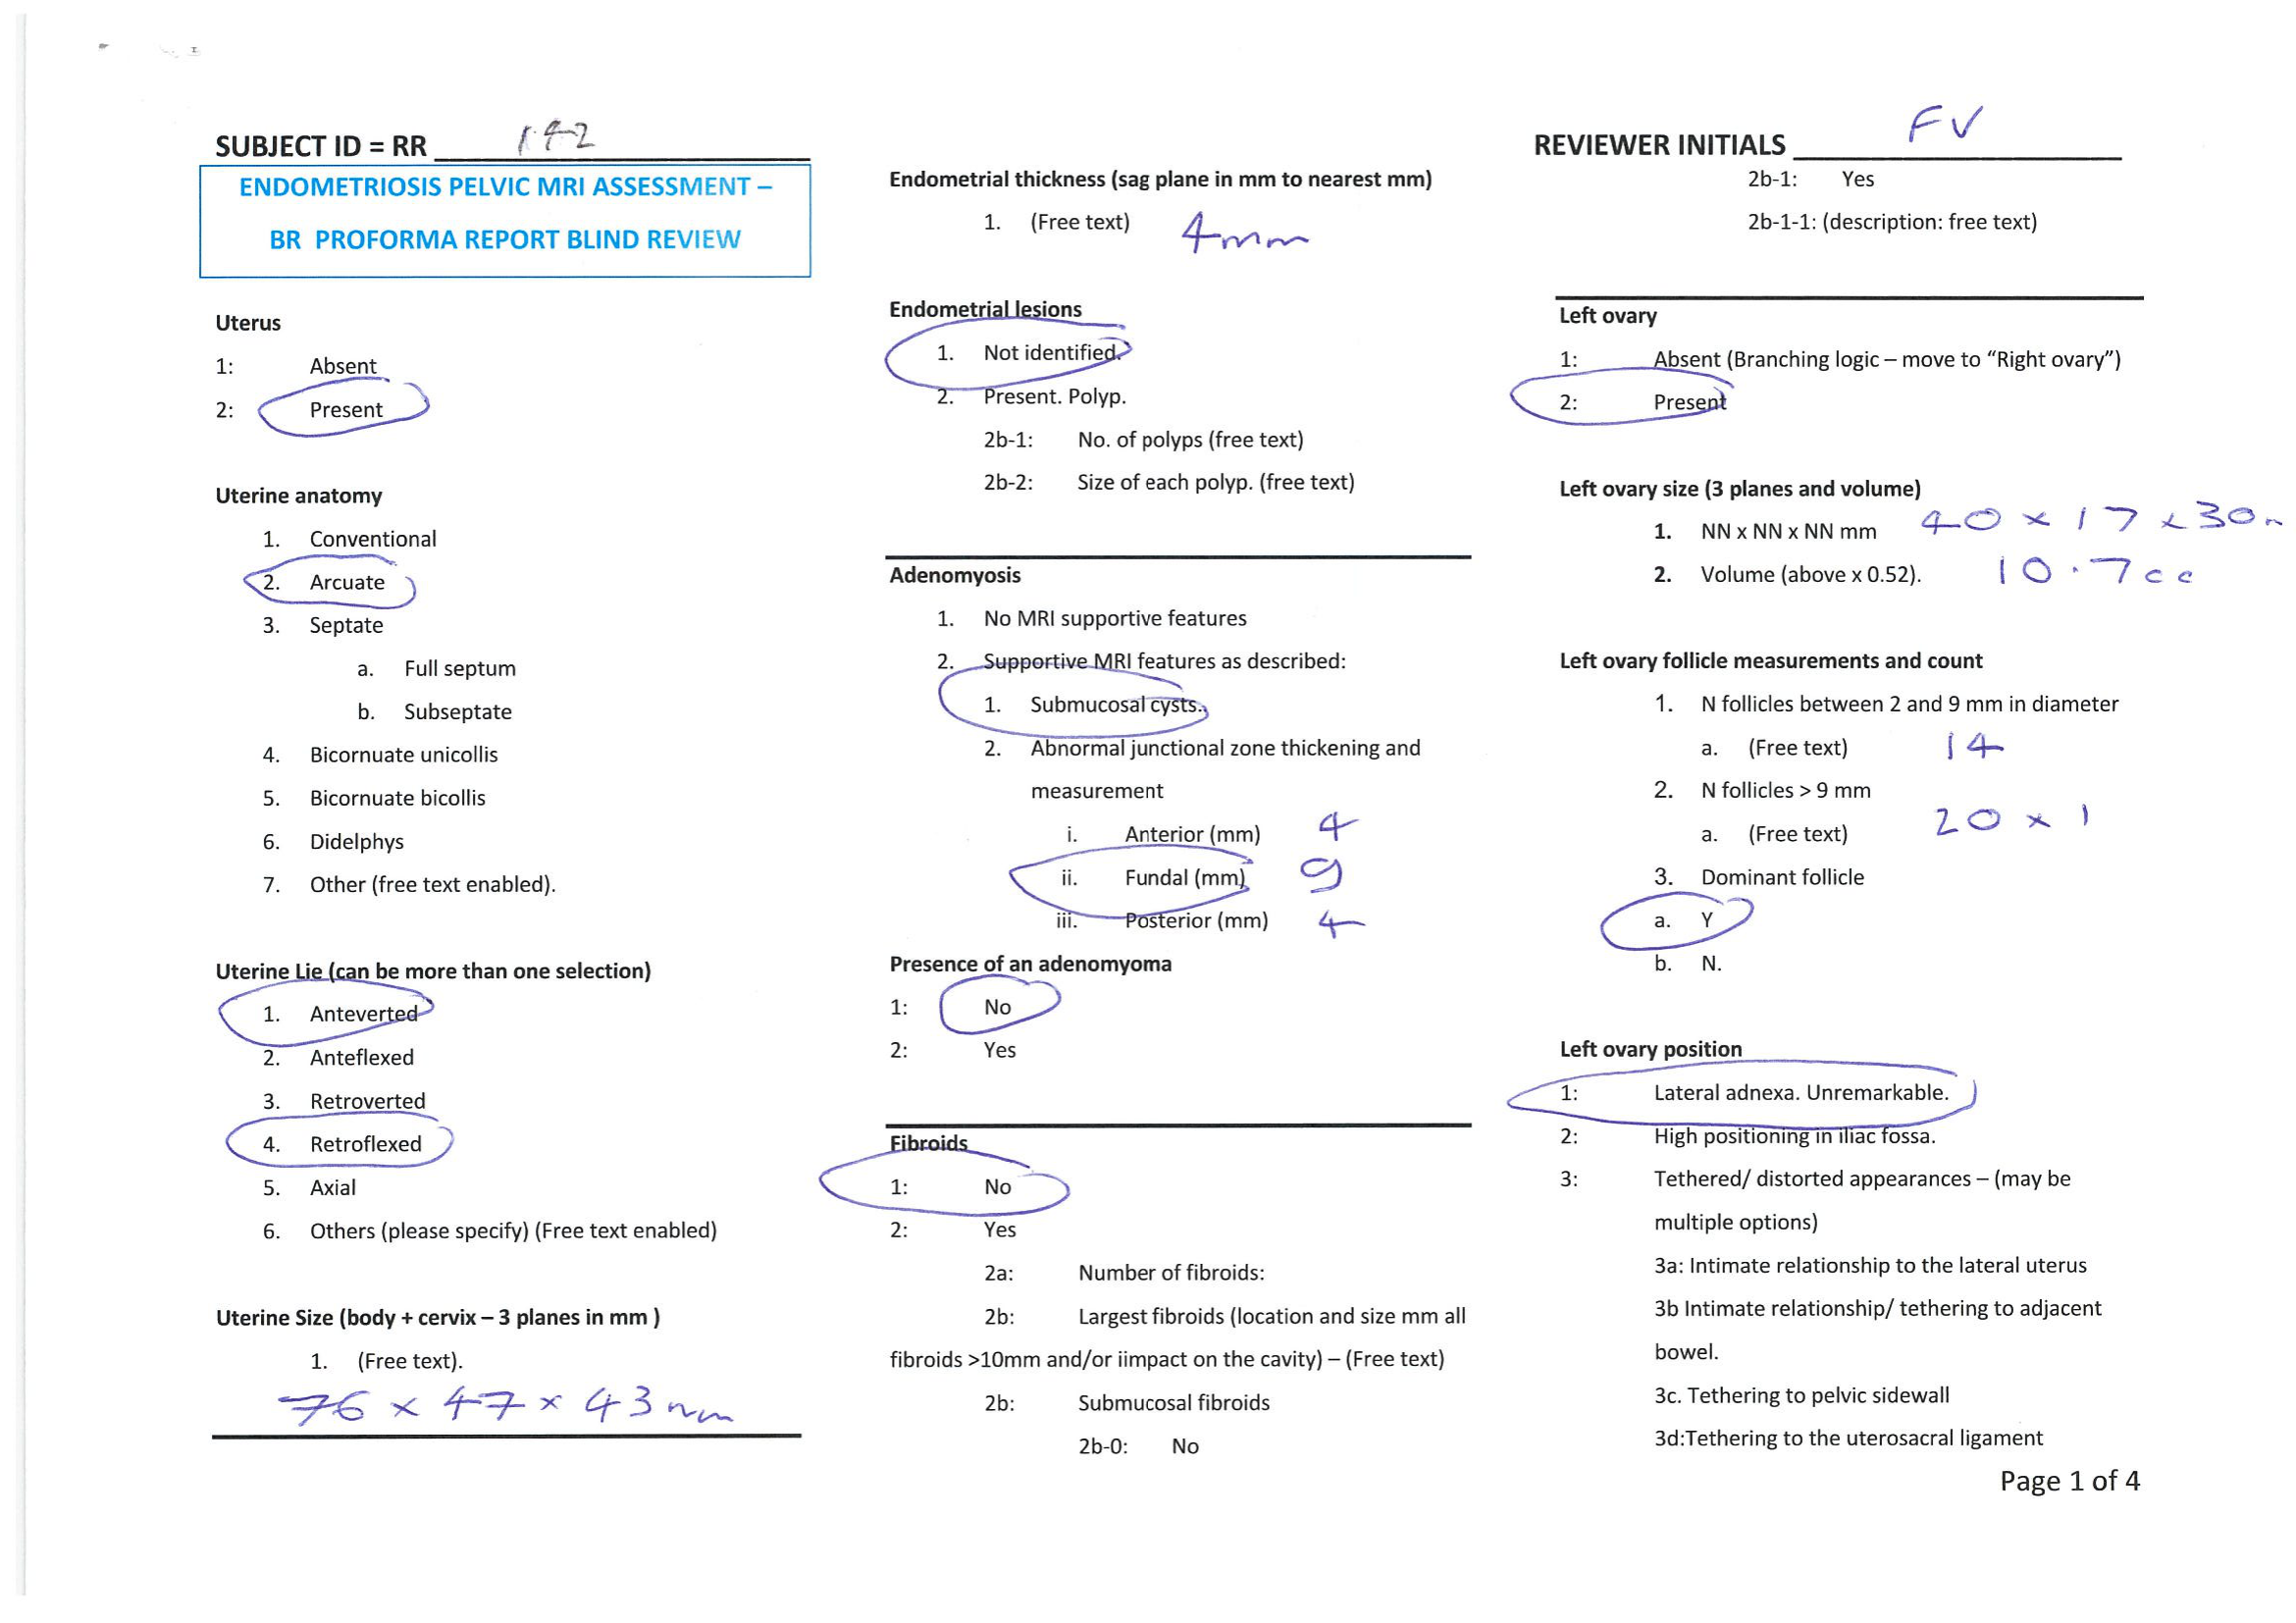 SUBJECT ID = RR 142
ENDOMETRIOSIS PELVIC MRI ASSESSMENT –
BR PROFORMA REPORT BLIND REVIEW
Uterus
1: Absent
2: Present
Uterine anatomy
1. Conventional
2. Arcuate
3. Septate
a. Full septum
b. Subseptate
4. Bicornuate unicollis
5. Bicornuate bicollis
6. Didelphys
7. Other (free text enabled).
Uterine Lie (can be more than one selection)
1. Anteverted
2. Anteflexed
3. Retroverted
4. Retroflexed
5. Axial
6. Others (please specify) (Free text enabled)
Uterine Size (body + cervix – 3 planes in mm )
1. (Free text).
76 x 47 x 43 mm
Endometrial thickness (sag plane in mm to nearest mm)
1. (Free text) 4mm
Endometrial lesions
1. Not identified.
2. Present. Polyp.
2b-1: No. of polyps (free text)
2b-2: Size of each polyp. (free text)
Adenomyosis
1. No MRI supportive features
2. Supportive MRI features as described:
1. Submucosal cysts..
2. Abnormal junctional zone thickening and
measurement
i. Anterior (mm) 4
ii. Fundal (mm) 9
iii. Posterior (mm) 4
Presence of an adenomyoma
1: No
2: Yes
Fibroids
1: No
2: Yes
2a: Number of fibroids:
2b: Largest fibroids (location and size mm all
fibroids >10mm and/or iimpact on the cavity) – (Free text)
2b: Submucosal fibroids
2b-0: No
REVIEWER INITIALS FV
2b-1: Yes
2b-1-1: (description: free text)
Left ovary
1: Absent (Branching logic – move to “Right ovary”)
2: Present
Left ovary size (3 planes and volume)
1. NN x NN x NN mm 40 x 17 x 30
2. Volume (above x 0.52). 10.7cc
Left ovary follicle measurements and count
1. N follicles between 2 and 9 mm in diameter
a. (Free text) 14
2. N follicles > 9 mm
a. (Free text) 20 x 1
3. Dominant follicle
a. Y
b. N.
Left ovary position
1: Lateral adnexa. Unremarkable.
2: High positioning in iliac fossa.
3: Tethered/ distorted appearances – (may be
multiple options)
3a: Intimate relationship to the lateral uterus
3b Intimate relationship/ tethering to adjacent
bowel.
3c. Tethering to pelvic sidewall
3d:Tethering to the uterosacral ligament
Page 1 of 4